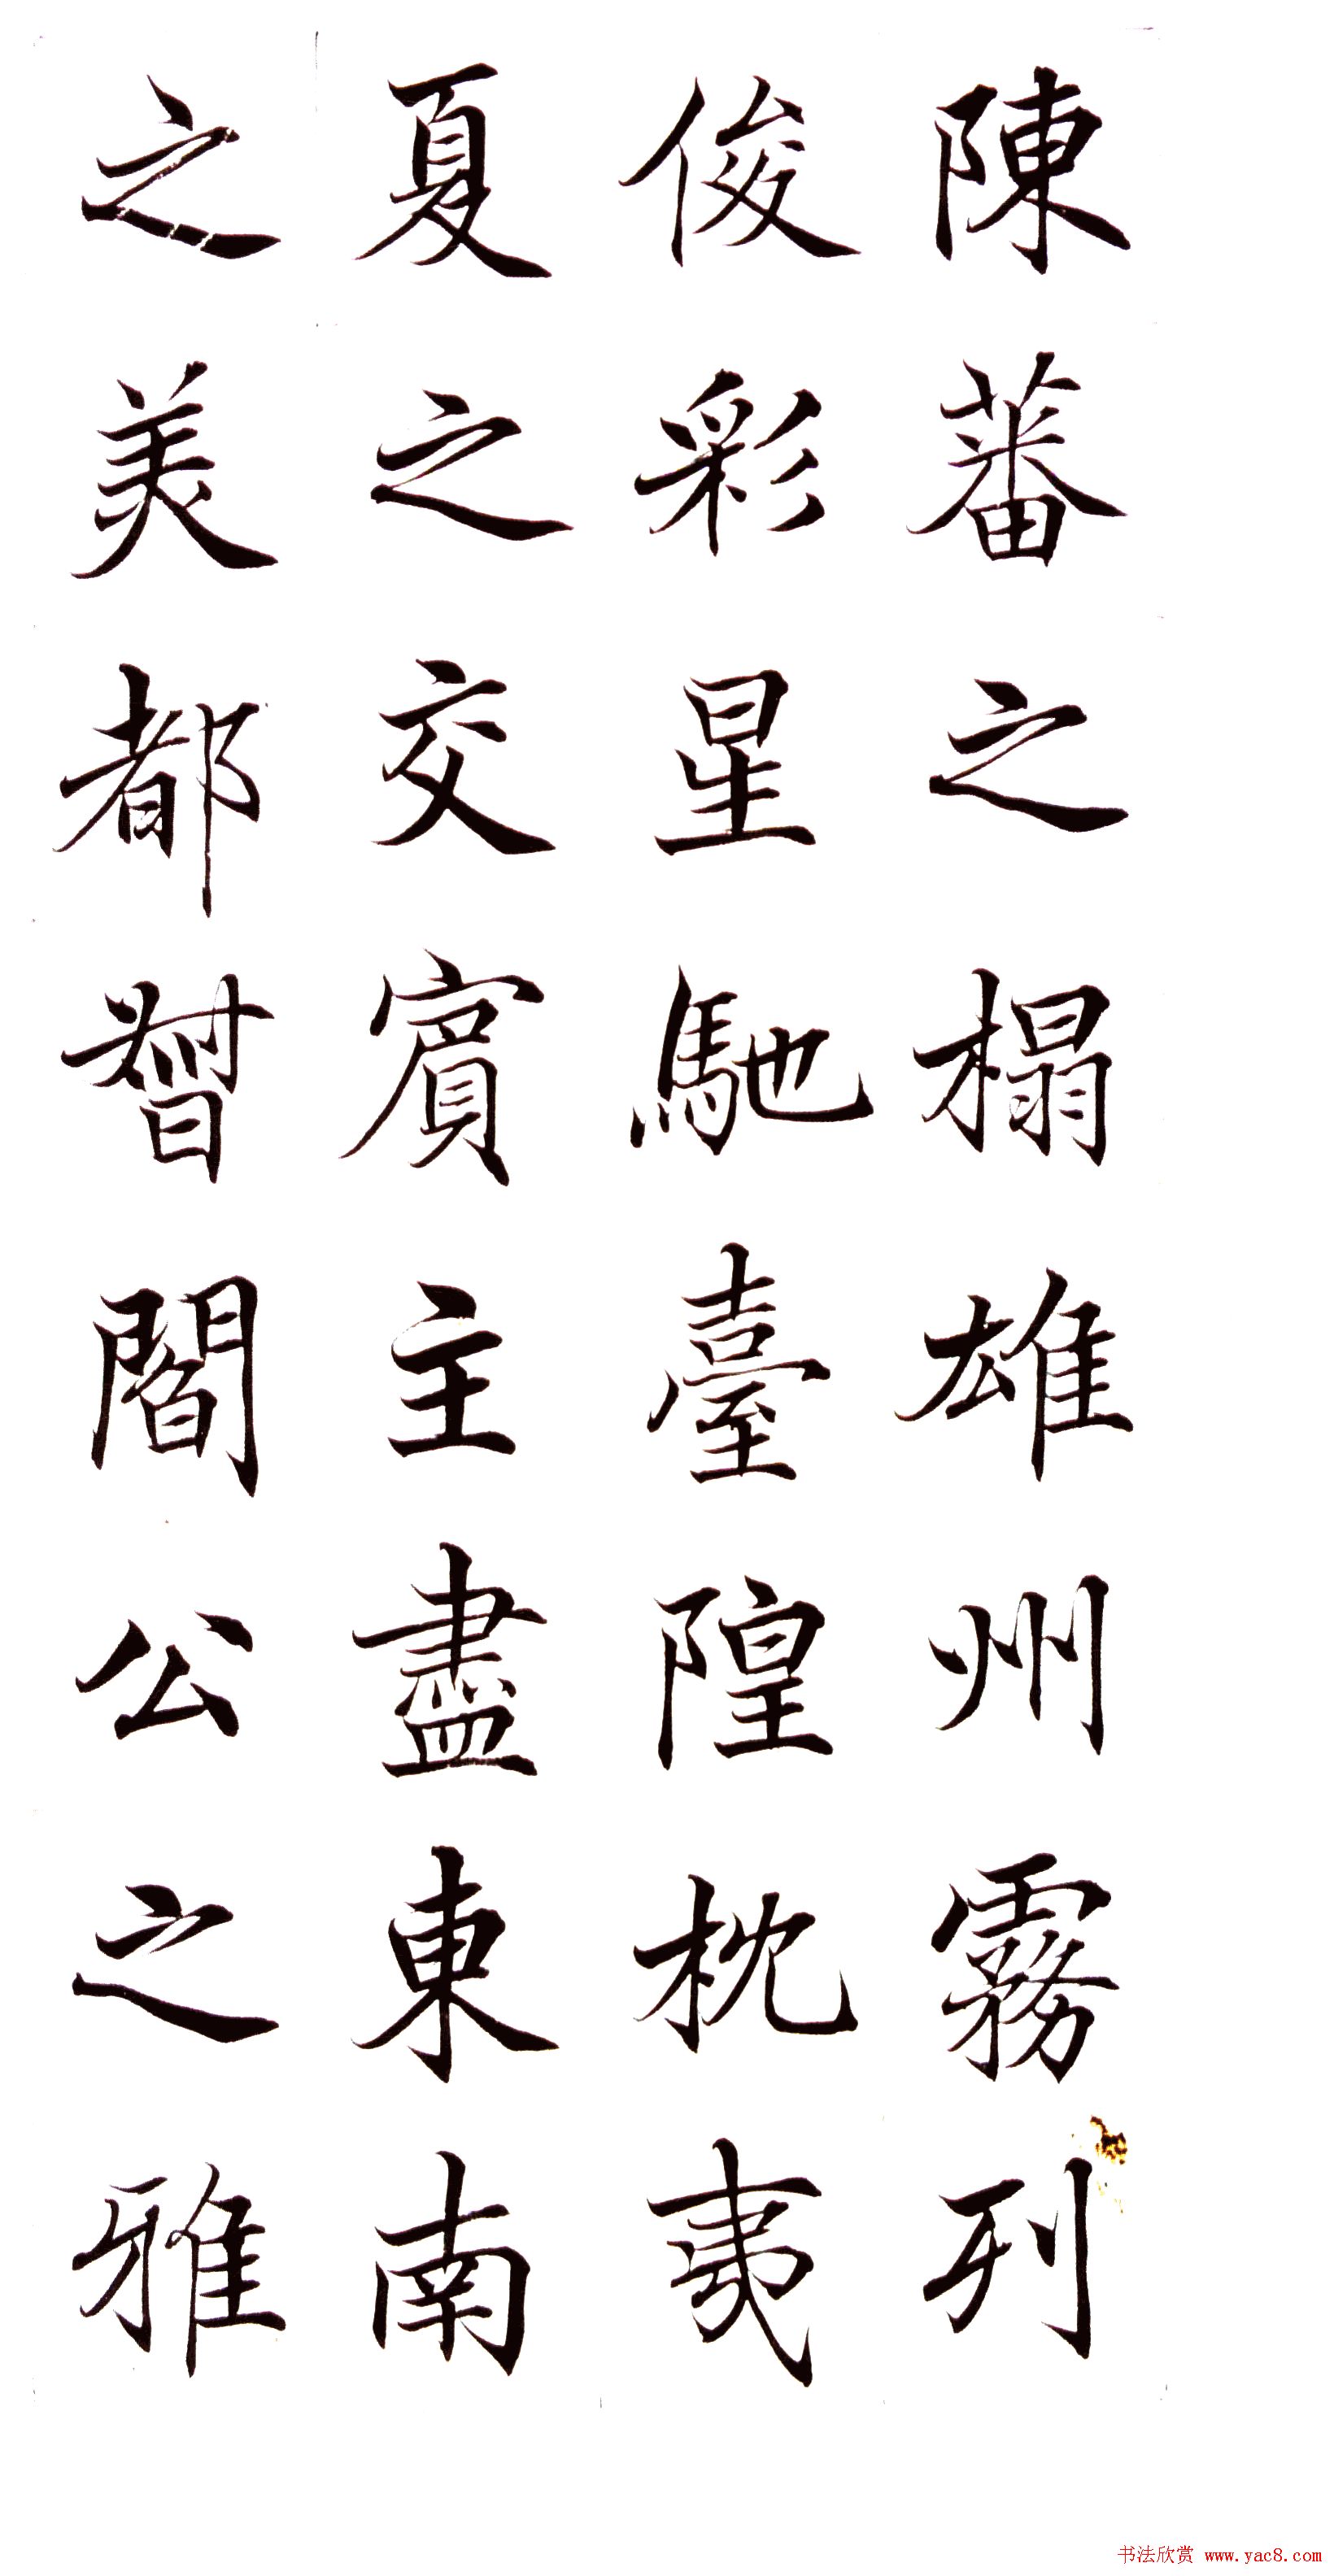 陳蕃之榻雄州霧列
俊彩星馳臺隍枕夷
夏之交賓主盡東南
之美都督閻公之雅
书法欣赏 www.yac8.com